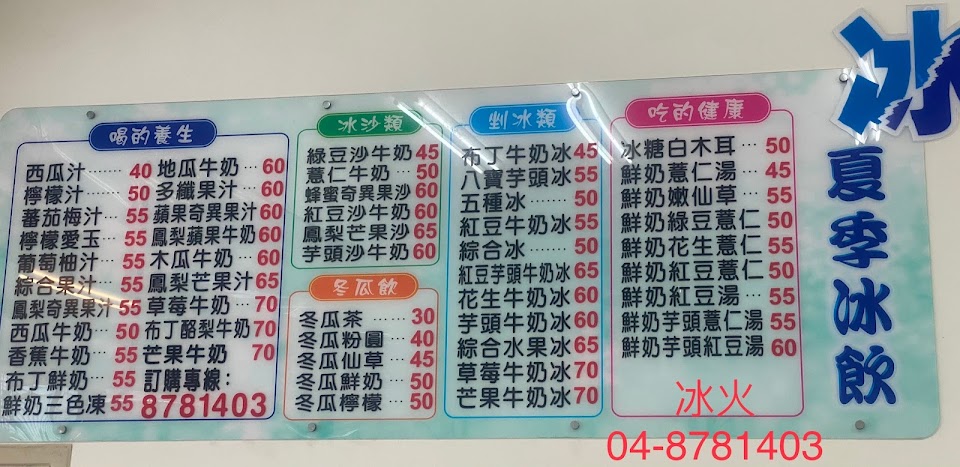 喝的養生
西瓜汁……40
檸檬汁…50
蕃茄梅汁…55
檸檬愛玉…55
葡萄柚汁…55
綜合果汁…55
鳳梨奇異果汁 55
西瓜牛奶…50
香蕉牛奶…55
布丁鮮奶…55
鮮奶三色凍 55
地瓜牛奶…60
多纖果汁…60
蘋果奇異果汁 60
鳳梨蘋果牛奶 60
木瓜牛奶…60
鳳梨芒果汁 65
草莓牛奶…70
布丁酪梨牛奶 70
芒果牛奶 70
訂購專線：
8781403
冰沙類
綠豆沙牛奶 45
薏仁牛奶…50
蜂蜜奇異果沙 60
紅豆沙牛奶 60
鳳梨芒果沙 65
芋頭沙牛奶 60
冬瓜飲
冬瓜茶…30
冬瓜粉圓…40
冬瓜仙草…45
冬瓜鮮奶…50
冬瓜檸檬…50
剉冰類
布丁牛奶冰 45
八寶芋頭冰 55
五種冰……50
紅豆牛奶冰 55
綜合冰……50
紅豆芋頭牛奶冰 65
花生牛奶冰 60
芋頭牛奶冰 60
綜合水果冰 65
草莓牛奶冰 70
芒果牛奶冰 70
吃的健康
冰糖白木耳…50
鮮奶薏仁湯…45
鮮奶嫩仙草…55
鮮奶綠豆薏仁 50
鮮奶花生薏仁 55
鮮奶紅豆薏仁 50
鮮奶紅豆湯…55
鮮奶芋頭薏仁湯 55
鮮奶芋頭紅豆湯 60
冰
夏季冰飲
冰火
04-8781403